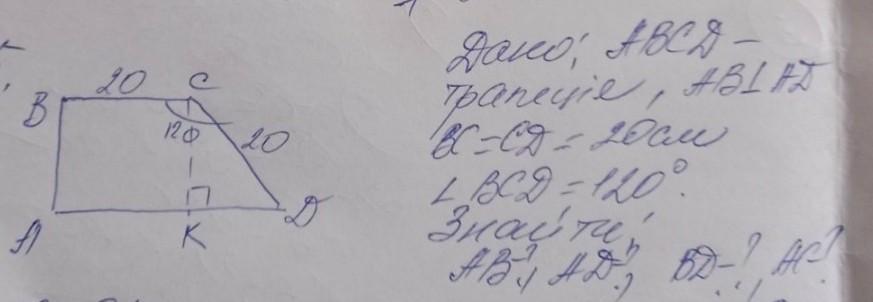 Дано: ABCD –
трапеція, AB⊥AD
BC=CD=20см
∠BCD=120°.
Знайти:
AB-?, AD-?, BD-?, AC-?
20
C
B
120
20
A
K
D